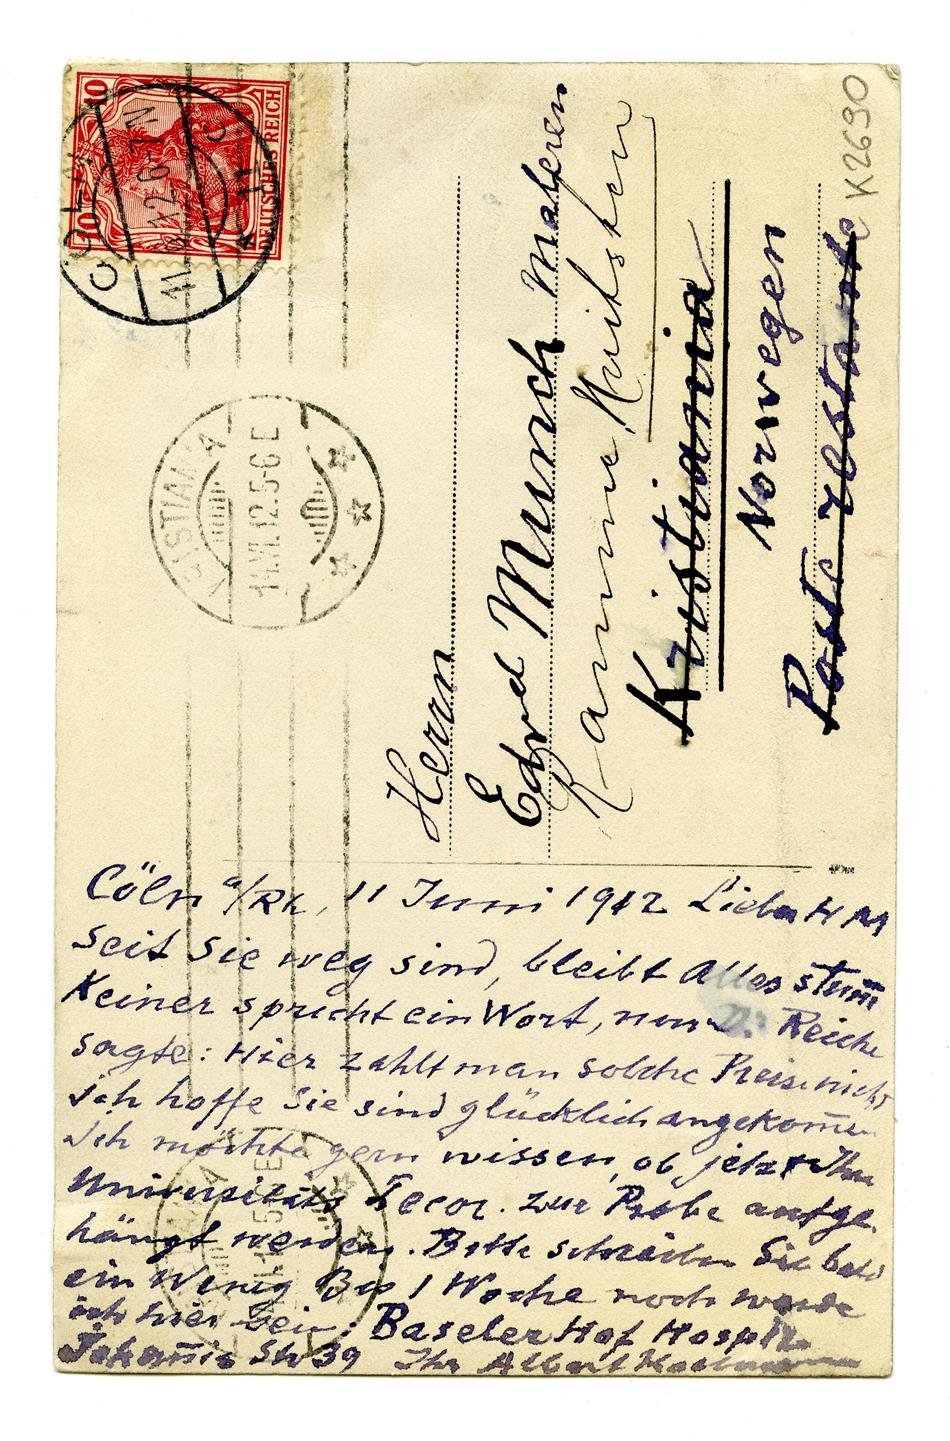 K2690
DEUTSCHES REICH
10 10
CÖLN
11.6.12.6-7N
KRISTIANIA
14.VI.12.5-6 E
Herrn
Edvd Munch Maleren
Kristiania
Norwegen
Poste restante
Cöln a/Rh, 11 Juni 1912 Lieber H M
seit Sie weg sind, bleibt Alles stum̄
Keiner spricht ein Wort, nur Dr Reiche
sagte: Hier zahlt man solche Preise nicht
ich hoffe Sie sind glücklich angekom̄en
ich möchte gern wissen, ob jetzt Ihre
Universitäts Decor. zur Probe aufge
hängt werden. Bitte schreiben Sie bald
ein Wenig Bis 1 Woche noch werde
ich hier sein. Baseler Hof Hospiz
Johan̄is Str 39 Ihr Albert Kollmann